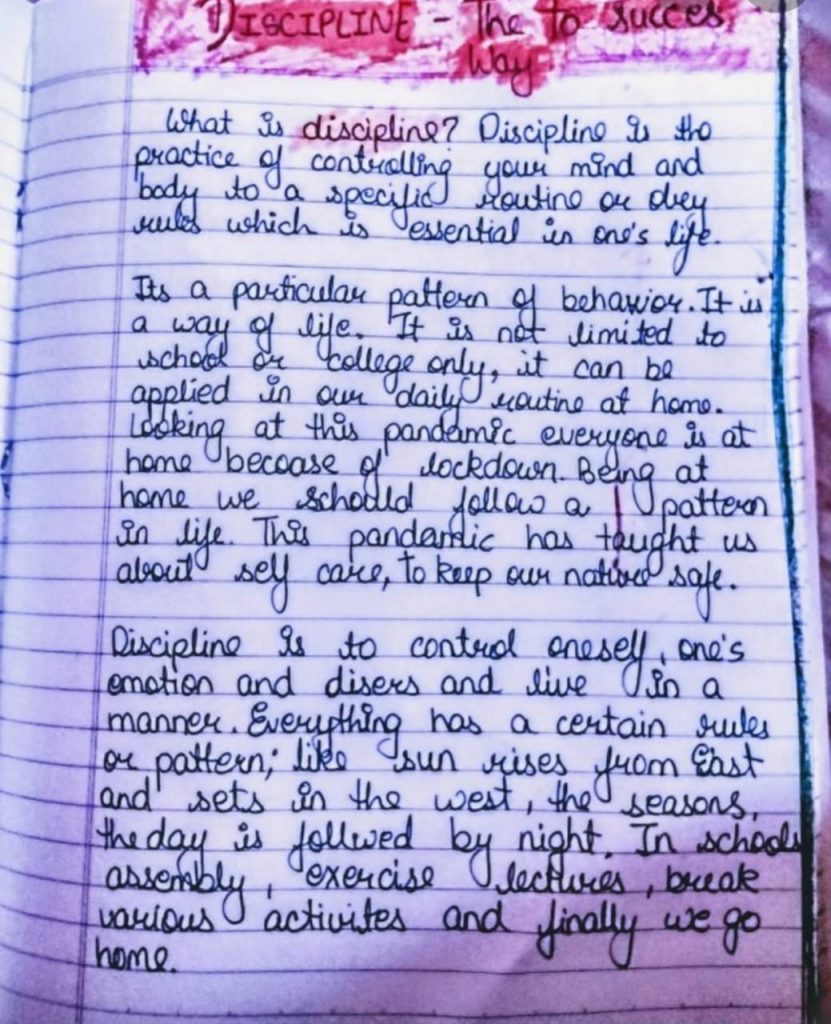 DISCIPLINE - The to succes
Way
What is discipline? Discipline is the
practice of controlling your mind and
body to a specific routine or obey
rules which is essential in one's life.
Its a particular pattern of behawior. It is
a way of life. It is not limited to
school or college only, it can be
applied in our daily routine at home.
Looking at this pandamic everyone is at
home becoase of lockdown. Being at
home we schould follow a pattern
in life. This pandamic has taught us
about self care, to keep our nature safe.
Discipline is to control oneself, one's
emotion and disers and live in a
manner. Everything has a certain rules
or pattern; like sun rises from East
and sets in the west, the seasons,
the day is follwed by night. In schools
assembly, exercise lectures, break
various activites and finally we go
home.